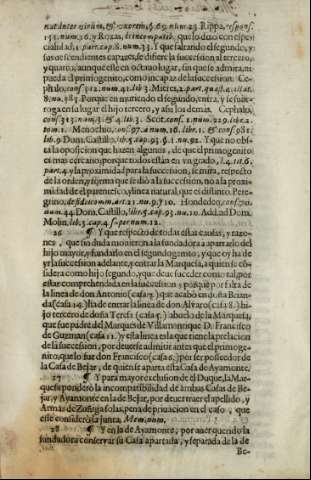 nat dnter virum, & uxorem, §. 69. num. 23. Rippa, respons.
155. num. 36. y Roxas, de incompatib. que lo dixo con espe-
cialidad, 1. part. cap. 8. num. 33. Y que faltando el segundo, y
sus descendientes capaces, se difiere la succession al tercero,
y quarto, aunque esté en octavo lugar, sin que se admita, ni
pueda el primogenito, como incapaz de la succession. Ce-
phalo, cons. 312. num. 41. lib. 3. Mieres, 2. part. quæst. 4. illat.
8. num. 283. Porque en muriendo el segundo, entra, y se subr-
roga en su lugar el hijo tercero, y assi los demas. Cephalo,
cons. 313. num. 3. & 4. lib. 3.
num. 1. Menochio, cons. 97. a num. 16. libr. 1. & cons. 981.
lib. 9. Dom. Castillo, lib. 5. cap. 93. §. 1. num. 92. Y que no obs-
ta la oposicion que hazen algunos, de que el primogenito
es mas cercano, porque todos están en un grado,
part. 4. y la proximidad para la succession, se mira, respecto
de la orden, y forma que se dió a la succession, no a la proxi-
midad de el parentesco, y linea natural, que es distinto. Pere-
grino, de fideicomm. art. 21. num. 9. & 10. Hondedeo,
num. 44. Dom. Castillo, libr. 5. cap. 93. num. 10. Add. ad Dom.
Molin. lib. 3. cap. 4. super num. 12.
26 ¶ Y que respecto de todas estas causas, y razo-
nes, que sin duda movieron a la fundadora a apartarlo del
hijo mayor, y fundarlo en el segundogenito, y que oy ha de
yr la succession adelante, y entrar la Marquesa, a quien se có-
sidera como hijo segundo, y que deue succeder como tal, por
estar comprehendida en la succession; porque por falta de
la linea de don Antonio (casa 7.) que acabó en doña Brian-
da (casa 14.) ha de entrar la linea de don Alvaro (casa 8.) hi-
jo tercero de doña Teresa (casa 5.) abuelo de la Marquesa,
que fue padre del Marques de Villamanrique D. Francisco
de Guzman (casa 11.) y esta linea es la que tiene la prelacion
de la succession, por deuerse admitir antes que el primoge-
nito, que lo fue don Francisco (casa 6.) por ser posseedor de
la Casa de Bejar, de quien se aparta esta Casa de Ayamonte.
27 ¶ Y para mayor exclusion de el Duque, la Mar-
quesa ponderó la incompatibilidad de ambas Casas de Be-
jar, y Ayamonte en la de Bejar, por deuer traer el apellido, y
Armas de Zuñiga solas, pena de privacion en el caso, que
esse consideró la junta, Mem. num.
28 ¶ Y en la de Ayamonte, por auer querido la
fundadora conservar su Casa apartada, y separada de la de
Be-